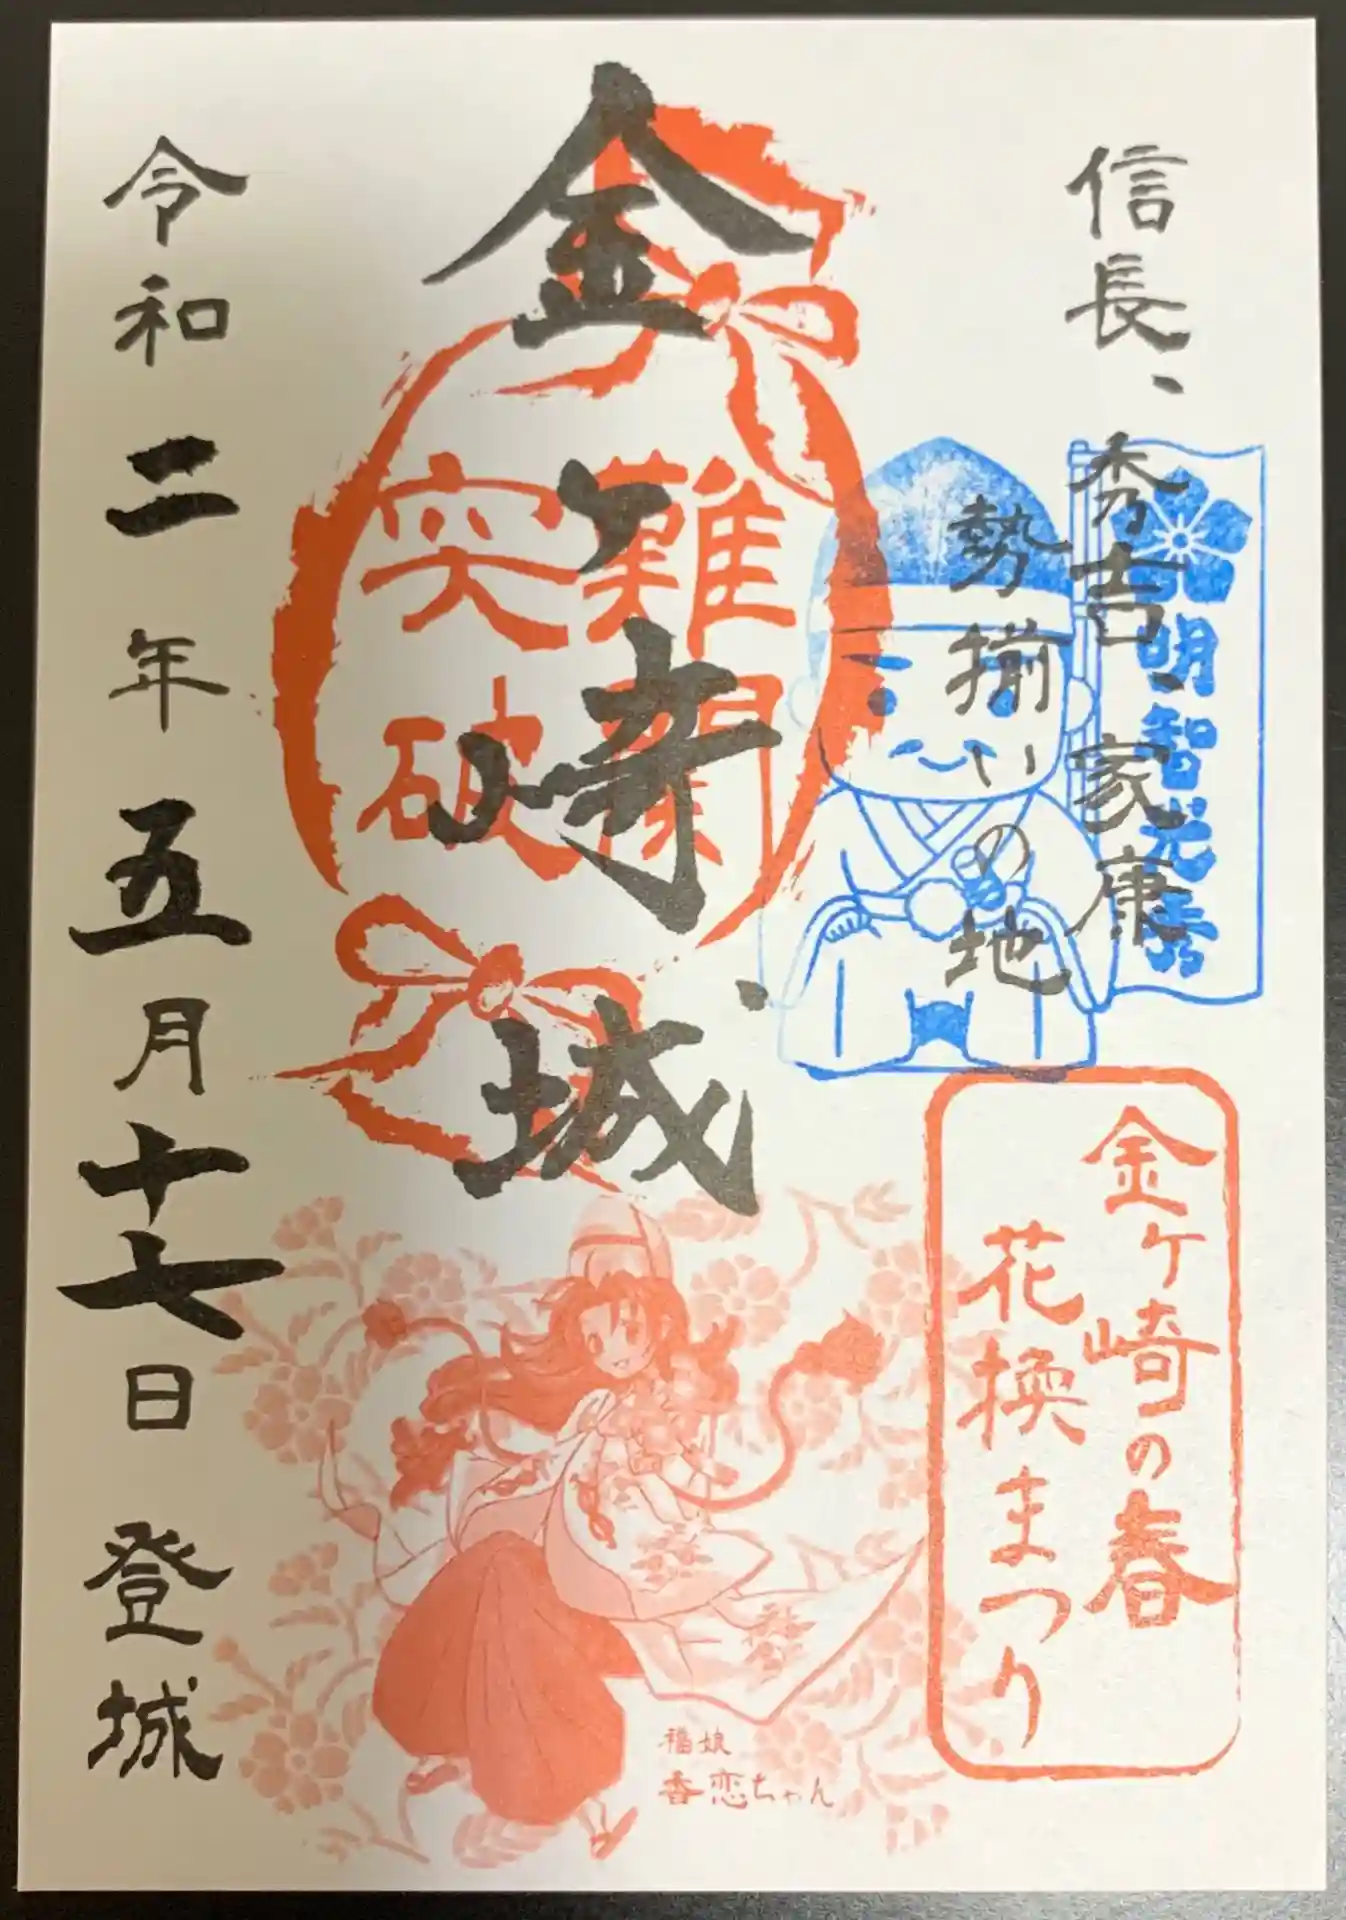 信長、秀吉、家康
勢揃いの地
明智光秀
金ヶ崎城
難関
突破
金ケ崎の春
花換まつり
福娘
香恋ちゃん
令和二年五月十七日登城